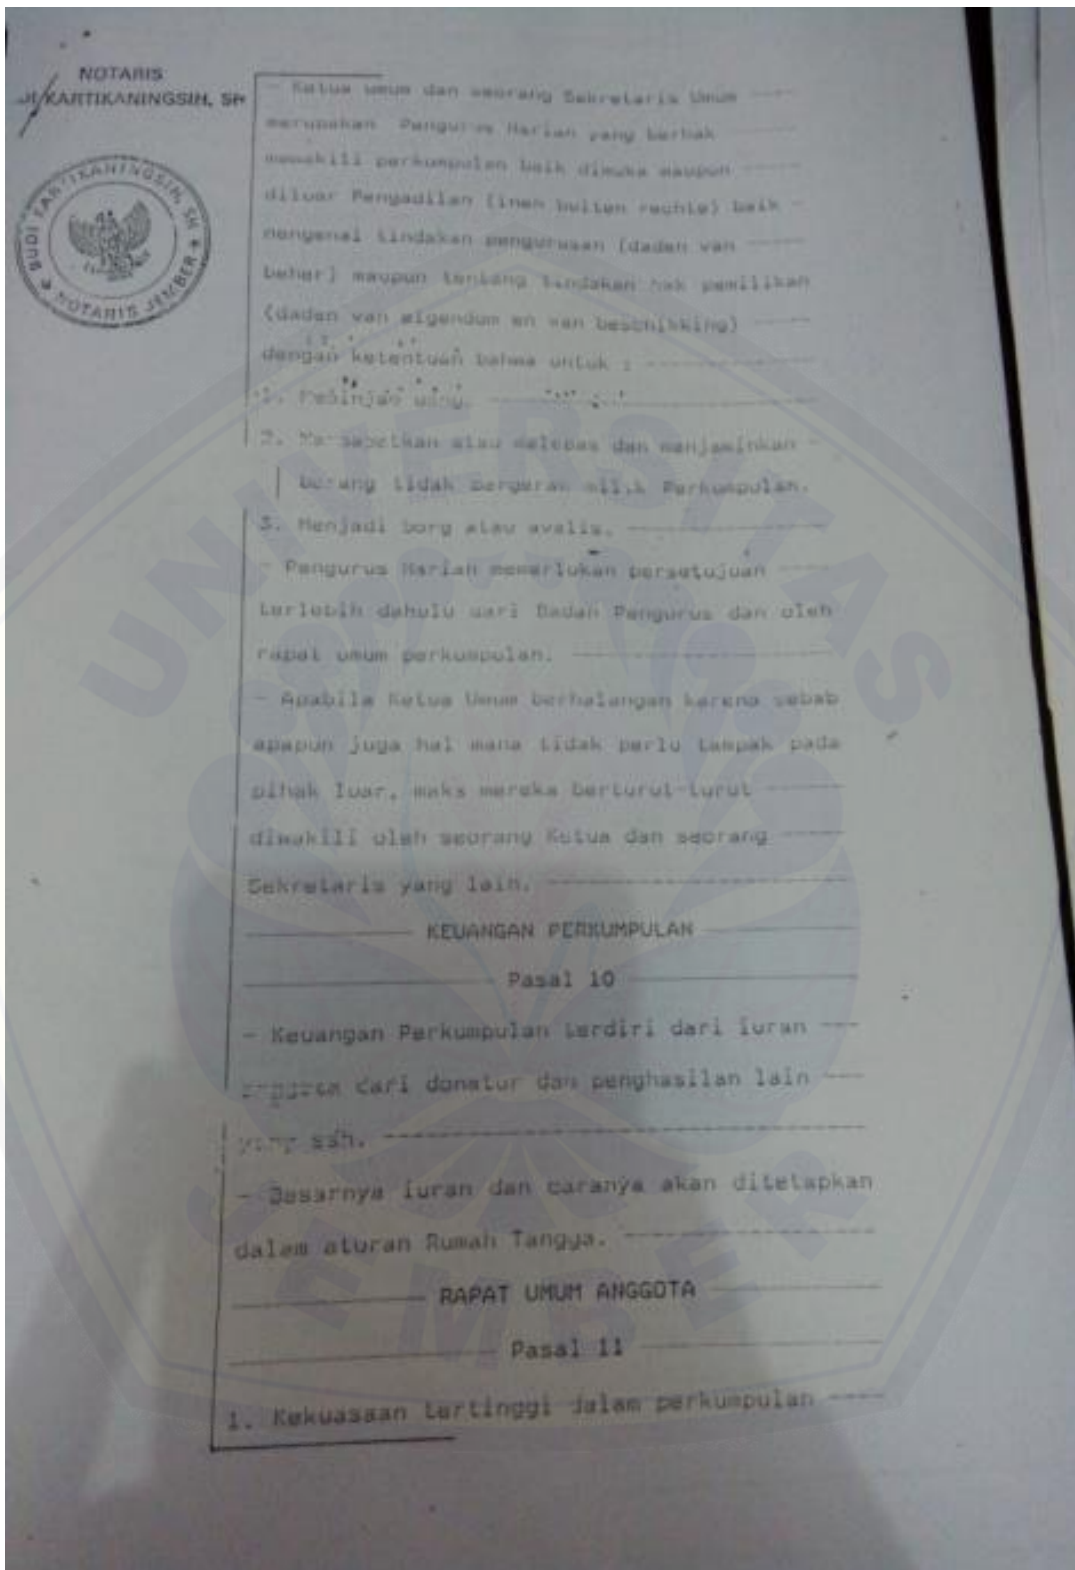 NOTARIS
KARTIKANINGSIH, SH
BUDI KARTIKANINGSIH, SH
NOTARIS JEMBER
UNIVERSITAS
JEMBER
- Ketua umum dan seorang Sekretaris Umum ----
merupakan Pengurus Harian yang berhak -----
mewakili perkumpulan baik dimuka maupun -----
diluar Pengadilan (inen buiten rechte) baik -
mengenai tindakan pengurusan (daden van -----
beher) maupun tentang tindakan hak pemilikan
(daden van eigendum en van beschikking) -----
dengan ketentuan bahwa untuk : --------------
1. Meminjam uang. --------------------
2. atau melepas dan menjaminkan -
barang tidak bergerak milik Perkumpulan.
3. Menjadi borg atau avalis. ----------------
- Pengurus Harian memerlukan persetujuan ----
terlebih dahulu dari Badan Pengurus dan oleh
rapat umum perkumpulan. ---------------------
- Apabila Ketua Umum berhalangan karena sebab
apapun juga hal mana tidak perlu tampak pada
pihak luar, maka mereka berturut-turut ------
diwakili oleh seorang Ketua dan seorang -----
Sekretaris yang lain. -----------------------
------------ KEUANGAN PERKUMPULAN -----------
------------------ Pasal 10 -----------------
- Keuangan Perkumpulan terdiri dari iuran ---
anggota dari donatur dan penghasilan lain ---
yang sah. -----------------------------------
- Besarnya iuran dan caranya akan ditetapkan
dalam aturan Rumah Tangga. ------------------
-------------- RAPAT UMUM ANGGOTA ------------
------------------- Pasal 11 -----------------
1. Kekuasaan tertinggi dalam perkumpulan ----